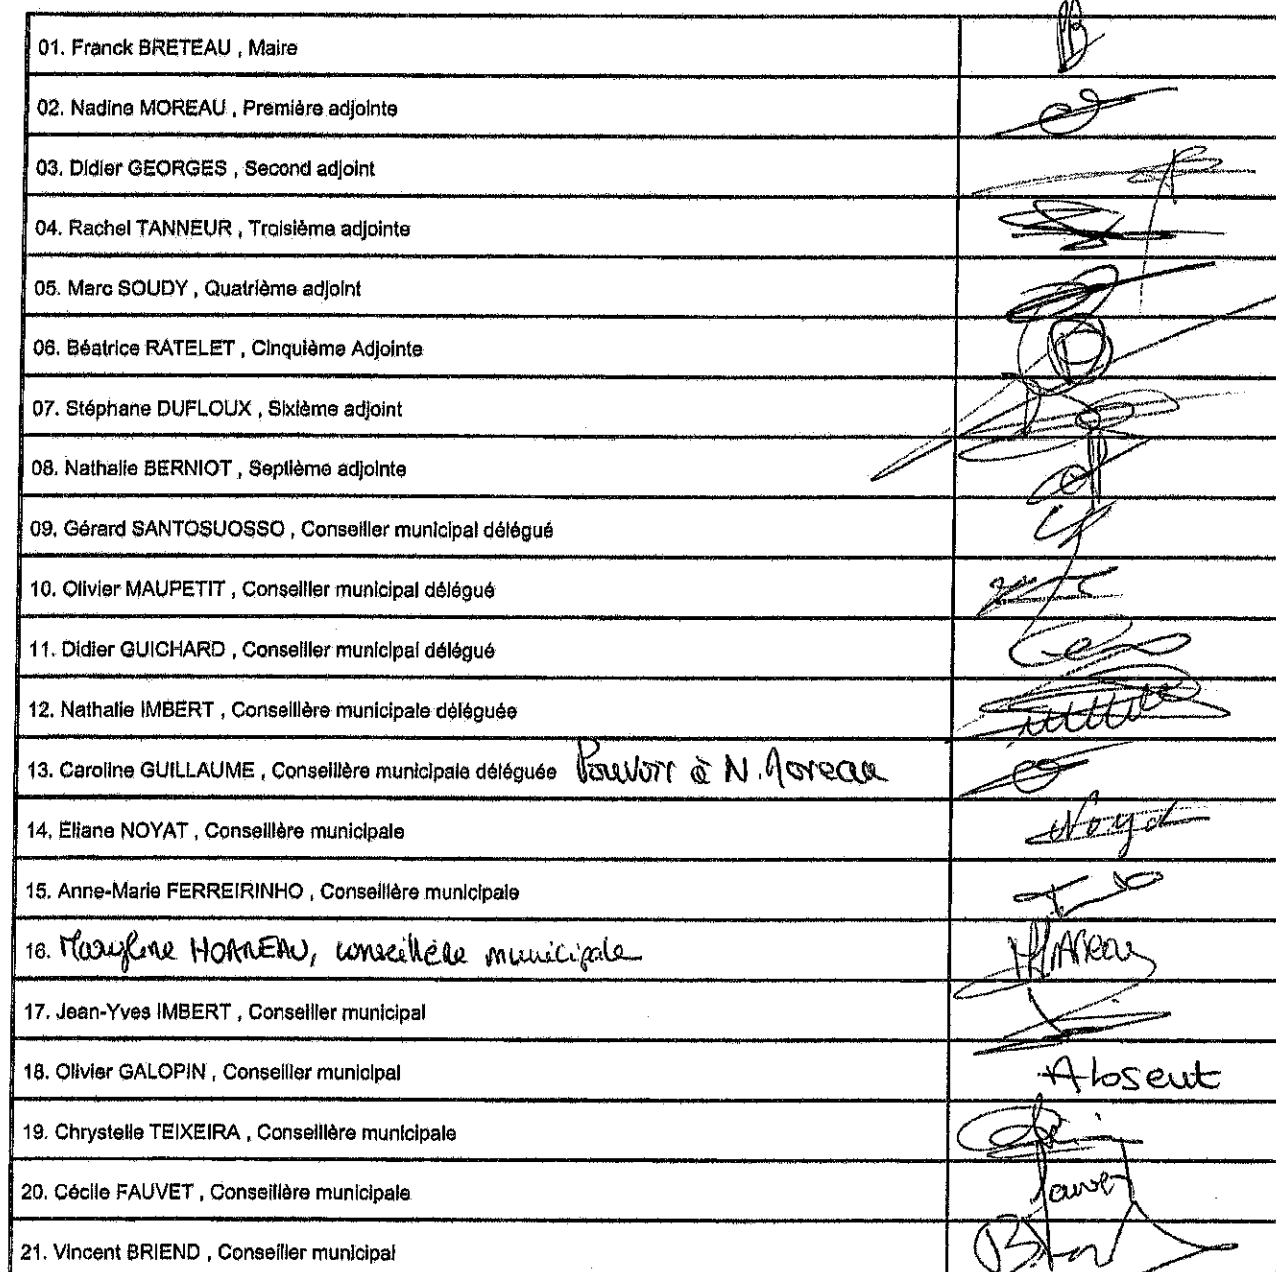 01. Franck BRETEAU , Maire
02. Nadine MOREAU , Première adjointe
03. Didier GEORGES , Second adjoint
04. Rachel TANNEUR , Troisième adjointe
05. Marc SOUDY , Quatrième adjoint
06. Béatrice RATELET , Cinquième Adjointe
07. Stéphane DUFLOUX , Sixième adjoint
08. Nathalie BERNIOT , Septième adjointe
09. Gérard SANTOSUOSSO , Conseiller municipal délégué
10. Olivier MAUPETIT , Conseiller municipal délégué
11. Didier GUICHARD , Conseiller municipal délégué
12. Nathalie IMBERT , Conseillère municipale déléguée
13. Caroline GUILLAUME , Conseillère municipale déléguée Pouvoir à N. Moreau
14. Eliane NOYAT , Conseillère municipale
15. Anne-Marie FERREIRINHO , Conseillère municipale
16. Maryline HORNEAU, conseillère municipale
17. Jean-Yves IMBERT , Conseiller municipal
18. Olivier GALOPIN , Conseiller municipal Absent
19. Chrystelle TEIXEIRA , Conseillère municipale
20. Cécile FAUVET , Conseillère municipale
21. Vincent BRIEND , Conseiller municipal